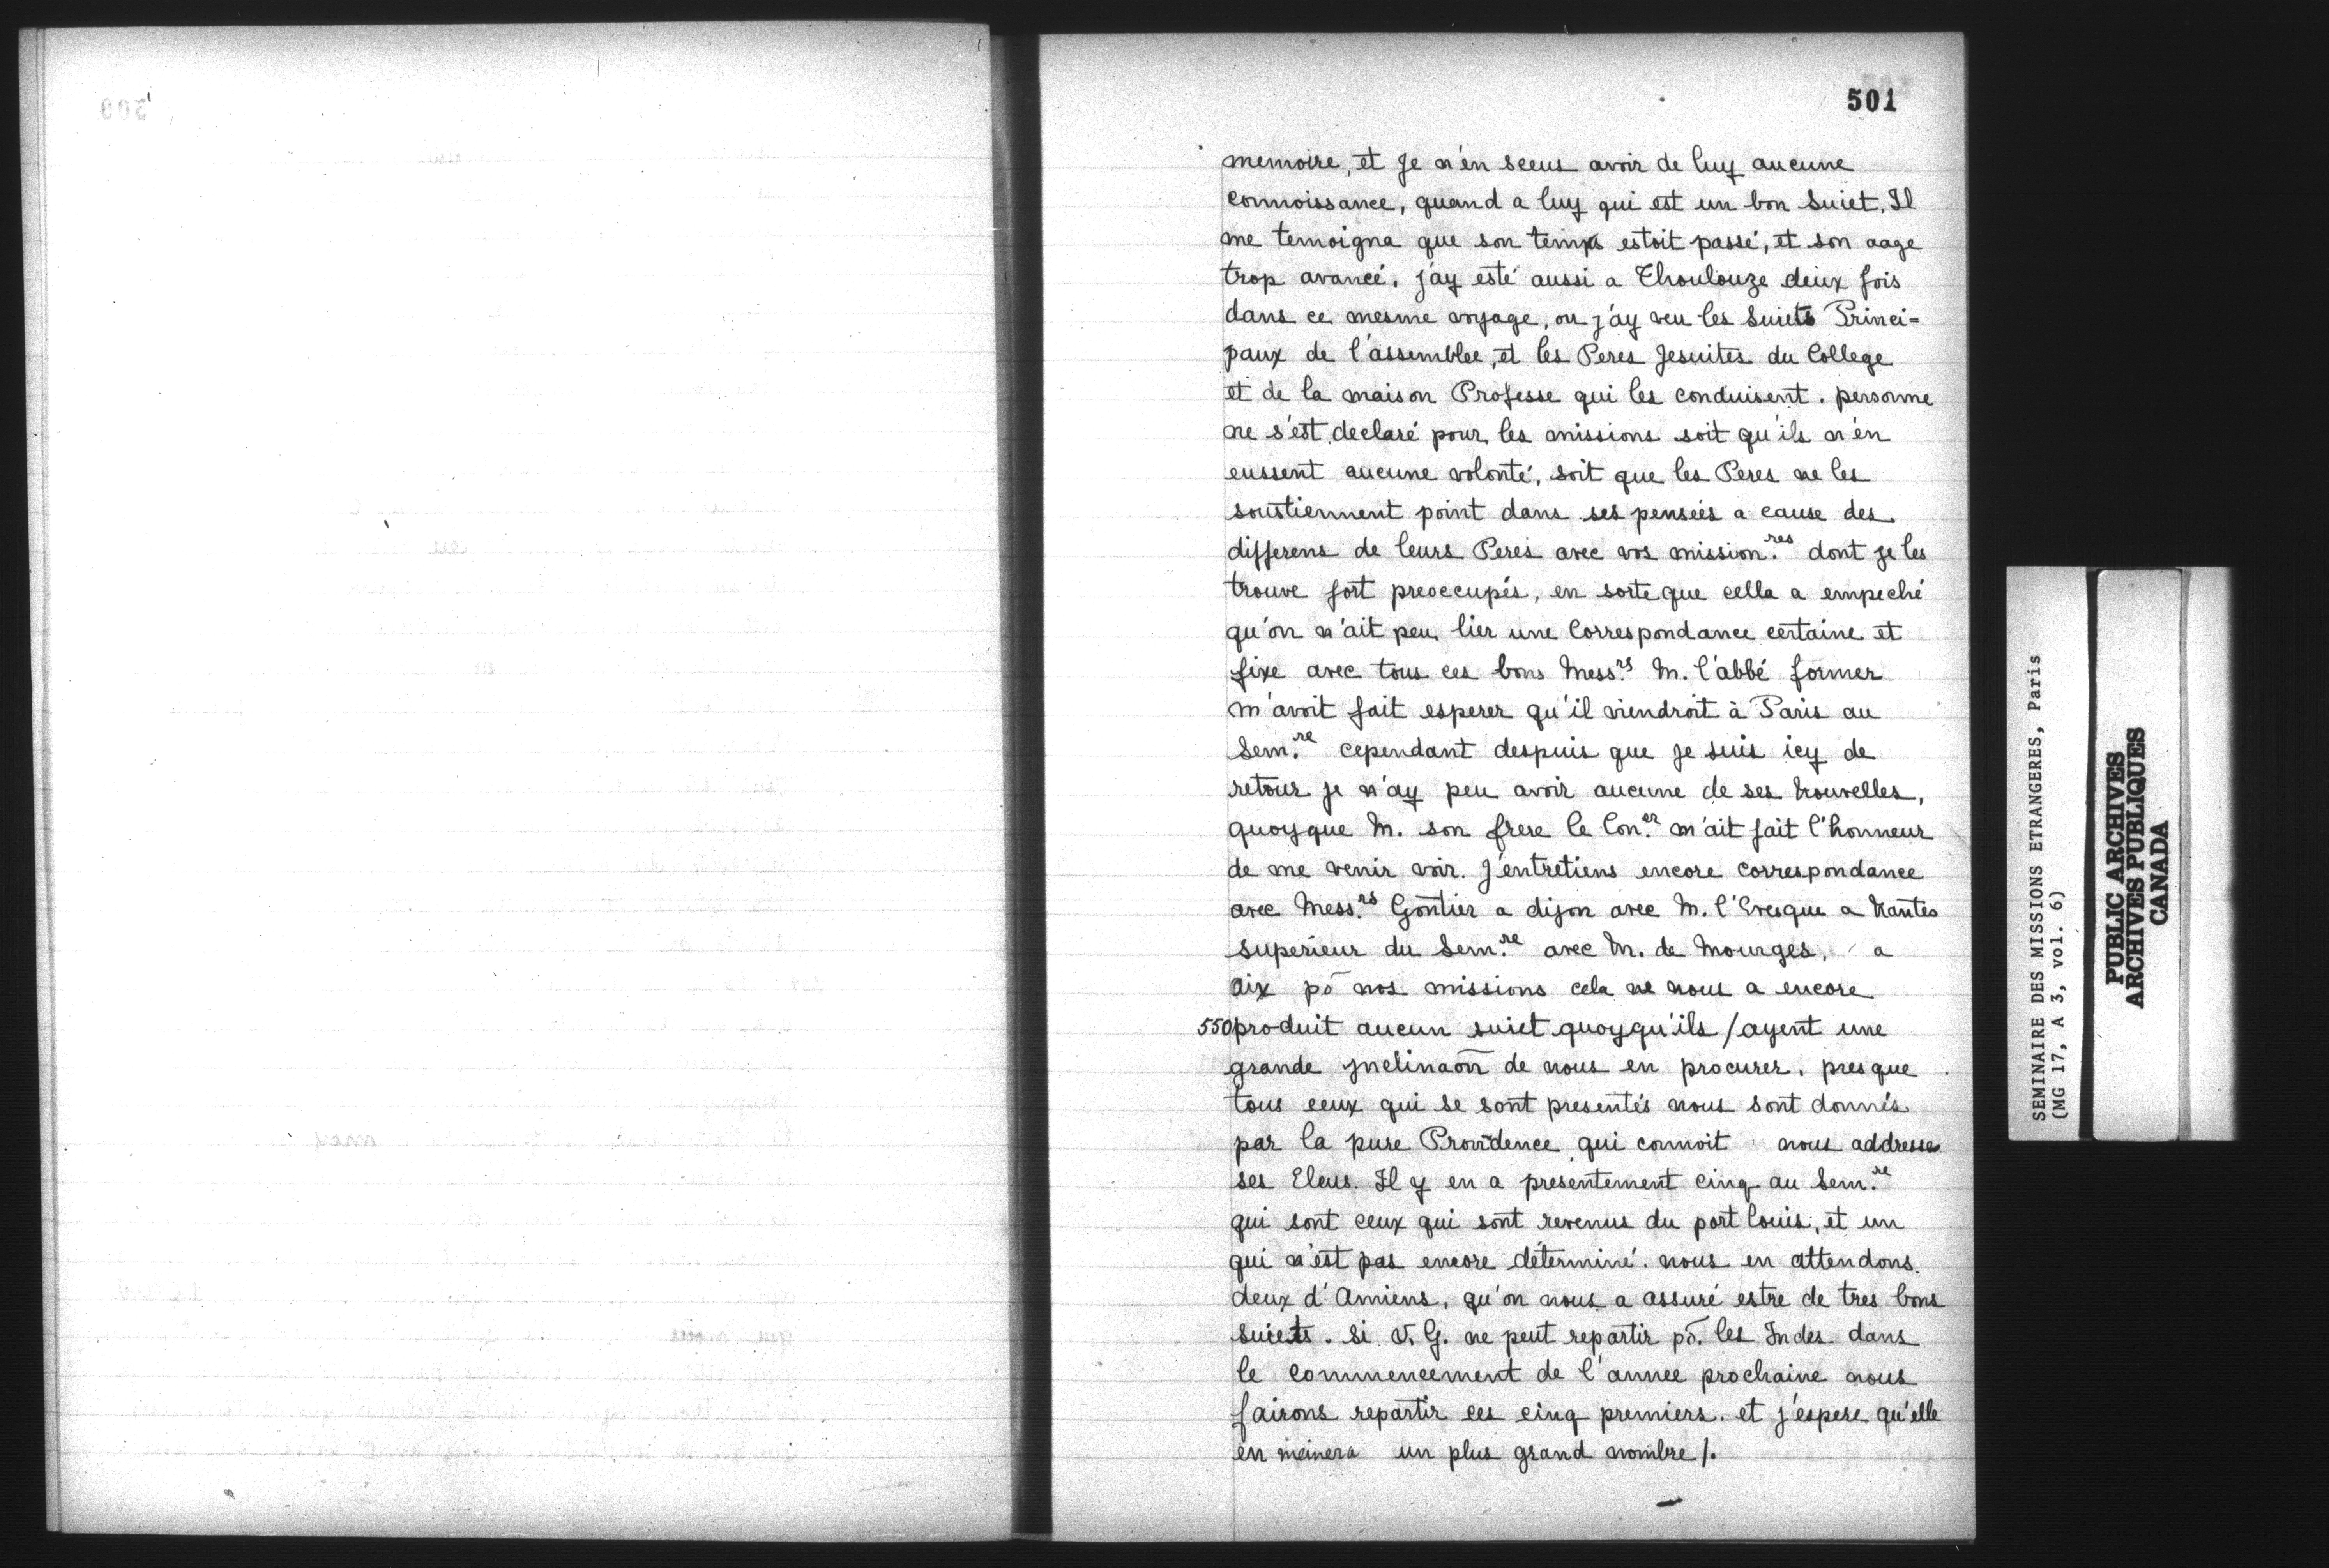 501
memoire, et Je n'en sceus avoir de luy aucune
connoissance, quand a luy qui est un bon Suiet. Il
me temoigna que son temps estoit passé, et son aage
trop avancé. j'ay esté aussi a Thoulouze deux fois
dans ce mesme voyage, ou j'ay veu les Suiets Princi=
paux de l'assemblee, et les Peres Jesuites du College
et de la maison Professe qui les conduisent. personne
ne s'est declaré pour les missions soit qu'ils n'en
eussent aucune volonté, soit que les Peres ne les
soustiennent point dans ses pensées a cause des
differens de leurs Peres avec vos mission.res dont je les
trouve fort preoccupés, en sorte que cella a empeché
qu'on n'ait peu lier une Correspondance certaine et
fixe avec tous ces bons Mess.rs M. l'abbé former
m'avoit fait esperer qu'il viendroit à Paris au
Sem.re cependant despuis que je suis icy de
retour je n'ay peu avoir aucune de ses Nouvelles,
quoyque M. son frere le Con.er m'ait fait l'honneur
de me venir voir. J'entretiens encore correspondance
avec Mess.rs Gontier a dijon avec M. l'Evesque a Nantes
superieur du Sem.re avec M. de Mourges, a
aix põ nos missions cela ne nous a encore
550 produit aucun suiet quoyqu'ils / ayent une
grande jnclinaõn de nous en procurer. presque
tous ceux qui se sont presentés nous sont donnés
par la pure Providence qui connoit nous addresse
ses Eleus. Il y en a presentement cinq au Sem.re
qui sont ceux qui sont revenus du port Louis, et un
qui n'est pas encore déterminé. nous en attendons
deux d'Amiens, qu'on nous a assuré estre de tres bons
suiets. Si V. G. ne peut repartir põ. les Indes dans
le commencement de l'annee prochaine nous
fairons repartir ces cinq premiers. et j'espere qu'elle
en meinera un plus grand nombre /.
SEMINAIRE DES MISSIONS ETRANGERES, Paris
(MG 17, A 3, vol. 6)
PUBLIC ARCHIVES
ARCHIVES PUBLIQUES
CANADA